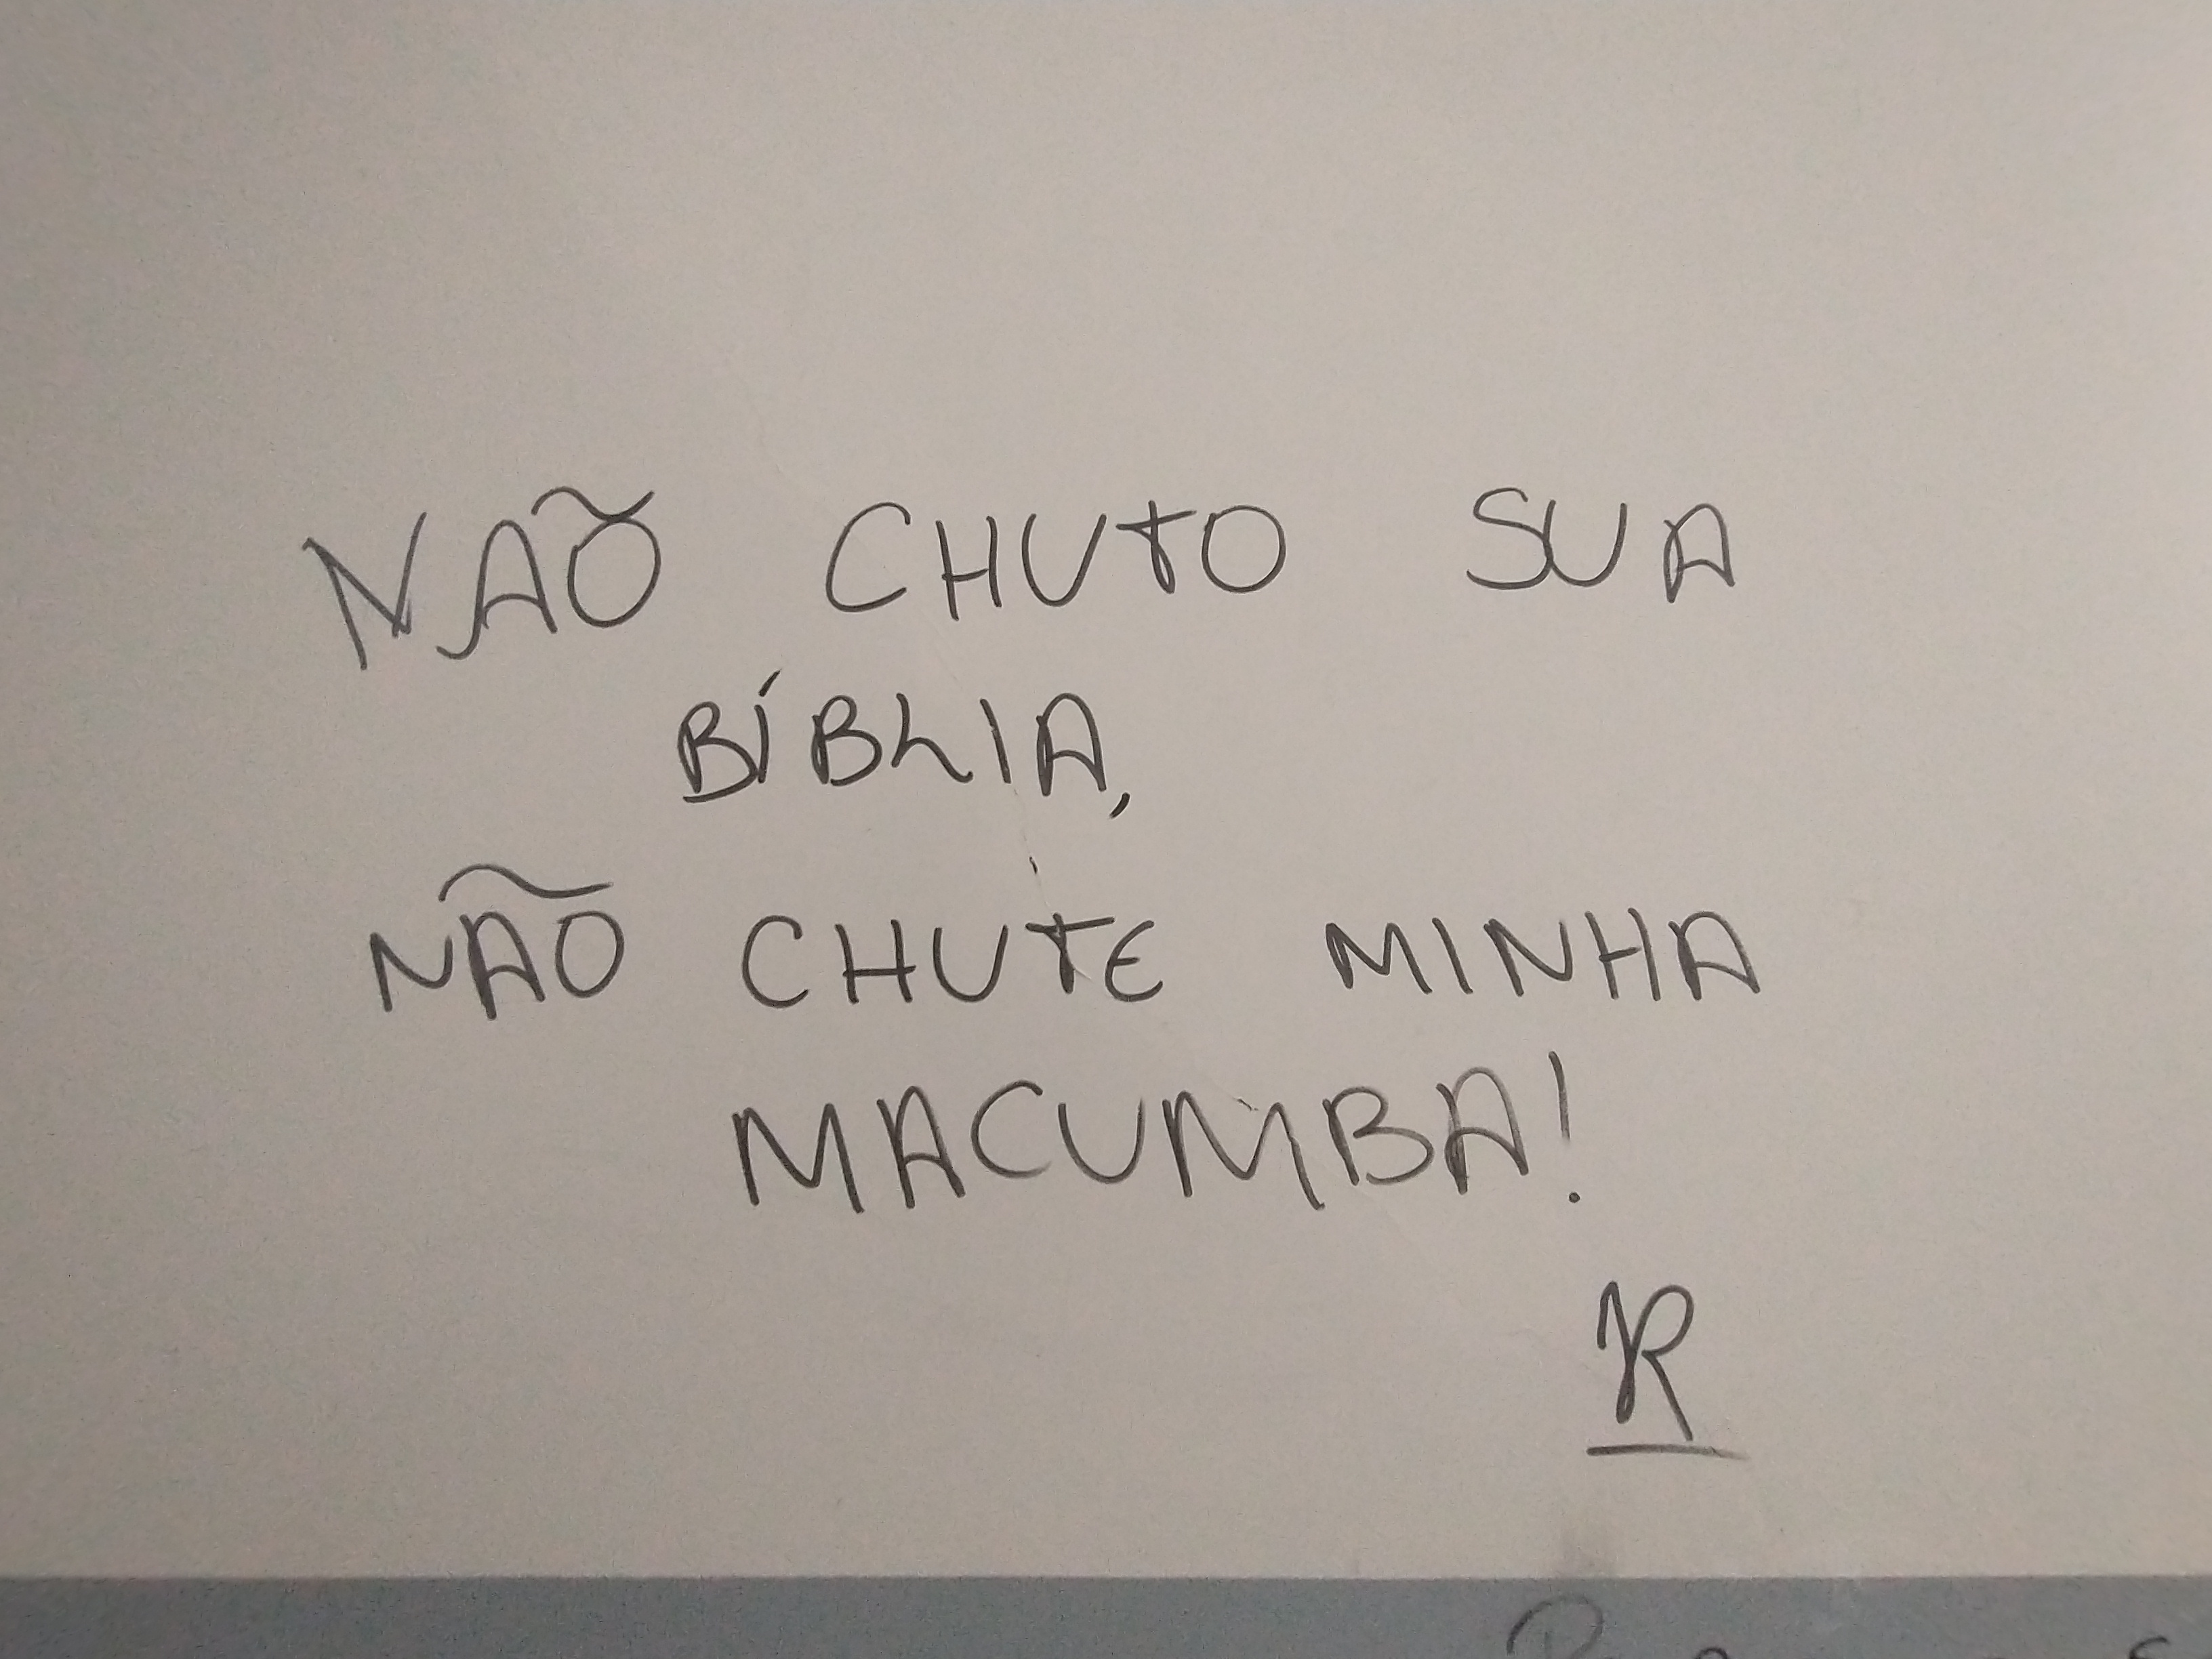 NÃO CHUTO SUA
BÍBLIA,
NÃO CHUTE MINHA
MACUMBA!
R